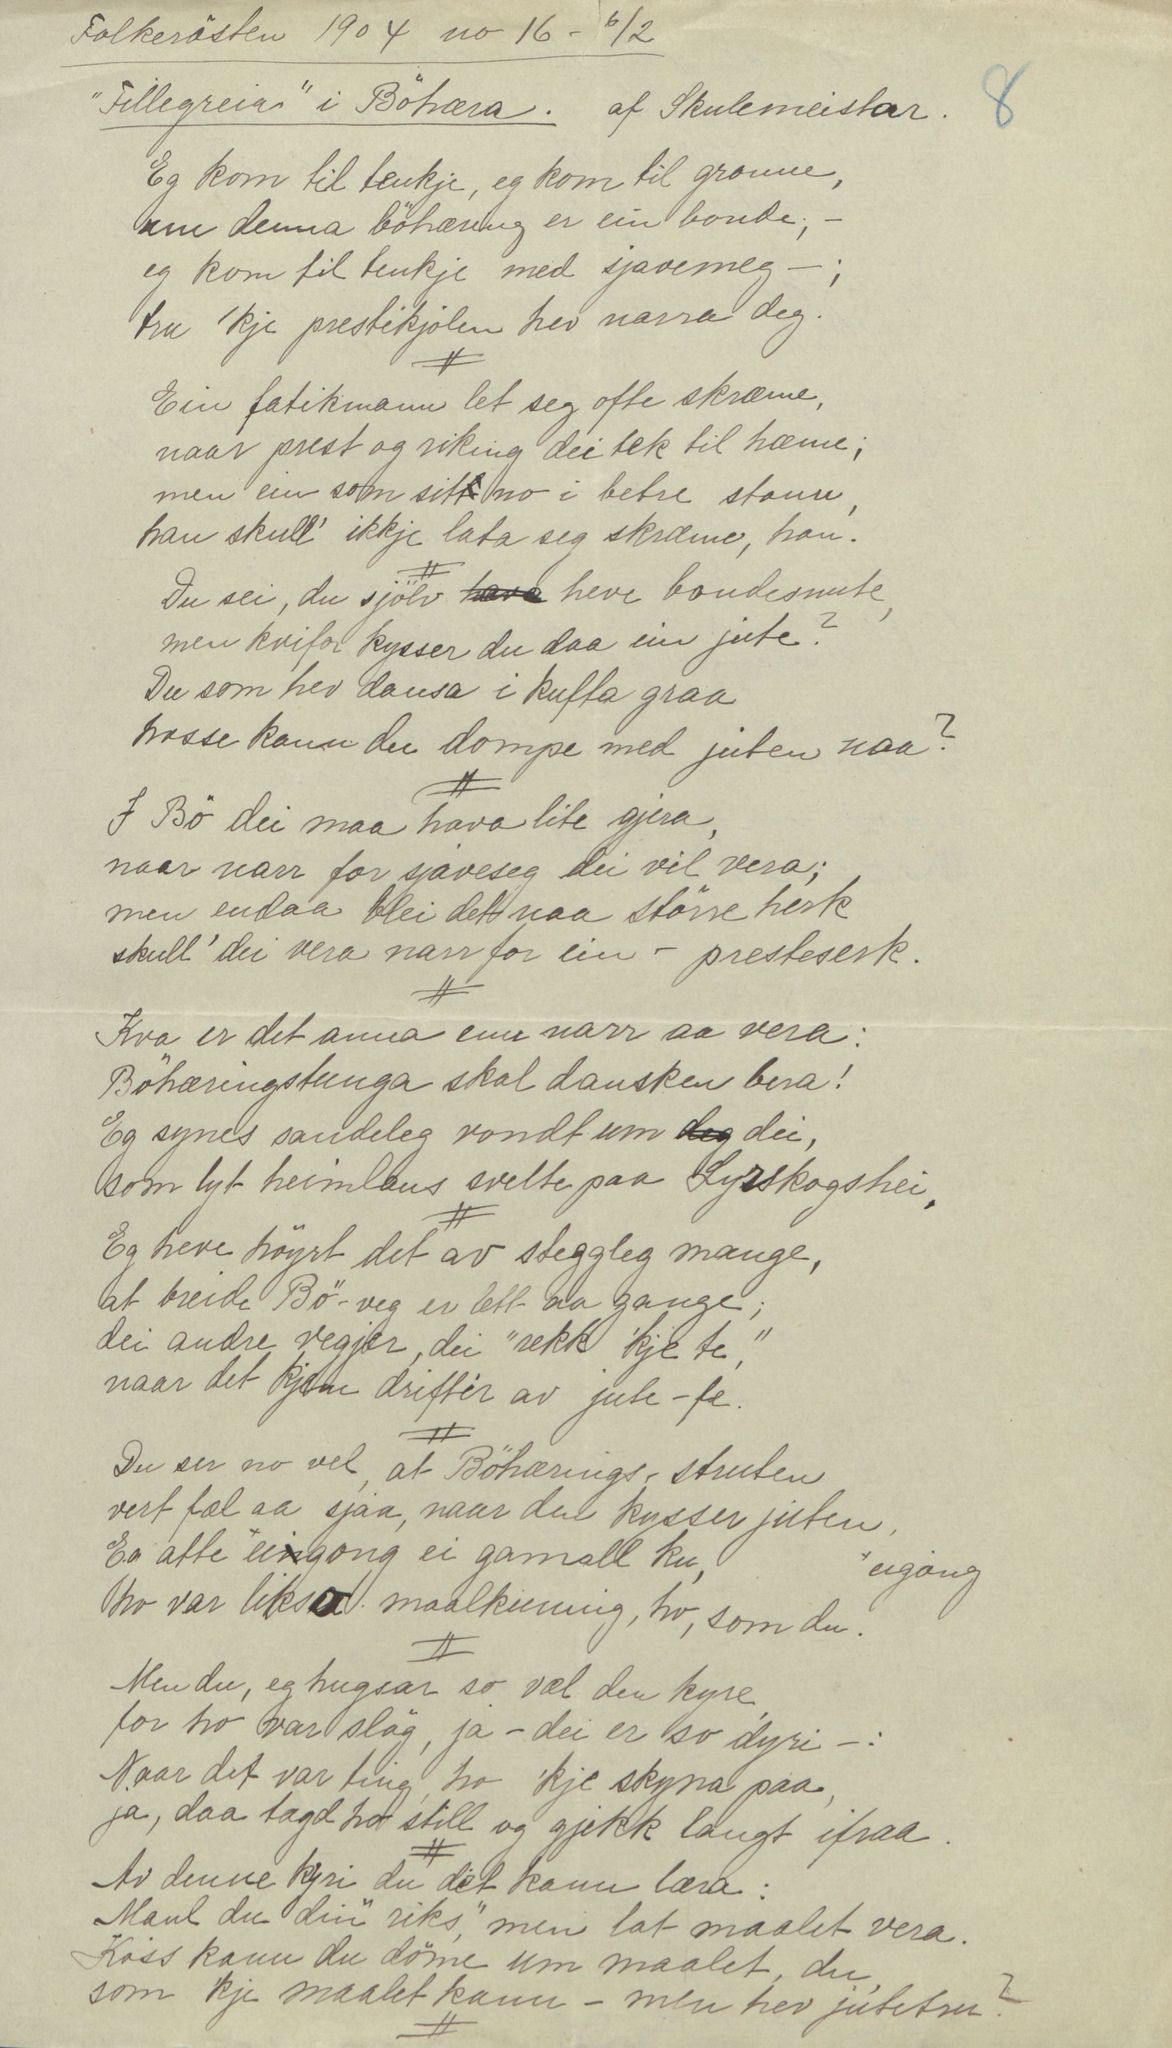 Folkerösten 1904 no 16 - 6/2
"Fillegreia" i Böhæra. af Skulemeistar. 8
Eg kom til tenkje, eg kom til gronne,
um denna böhæring er ein bonde; -
eg kom til tenkje med sjavemeg - ;
tru 'kje prestekjolen hev narra deg.
#
Ein fatikmann let seg ofte skræme,
naar prest og riking dei tek til hæme;
men ein som sitt no i betre stand,
han skull' ikkje lata seg skræme, han.
#
Du sei, du sjölv hava heve bondesnute,
men kvifor kysser du daa ein jute?
Du som hev dansa i kufta graa
hosse kann du dompe med juten naa?
#
I Bö dei maa hava lite gjera,
naar narr for sjaveseg dei vil vera;
men endaa blei det naa större herk
skull' dei vera narr for ein - presteserk.
#
Kva er det anna enn narr aa vera:
Böhæringstunga skal dansken bera!
Eg synes sandeleg vondt um deg dei,
som lyt heimlaus svelte paa Lyrskogshei.
#
Eg heve höyrt det av steggleg mange,
at breide Bö-veg er lett aa gange;
dei andre vegjer, dei "rekk 'kje te,"
naar det kjem drifter av jute-fe.
#
Du ser no vel, at Böhærings-struten
vert fæl aa sjaa, naar den kysser juten,
Eg atte *eingong ei gamall ku, *eigong
ho var likso maalkunnig, ho, som du.
#
Men du, eg hugsar so væl den kyre,
for ho var slög, ja - dei er so dyri - :
Naar det var ting, ho 'kje skyna paa,
ja, daa tagd ho still og gjekk langt ifraa.
#
Av denne kyri du det kann læra:
Maul du din "riks," men lat maalet vera.
Koss kann du döme um maalet, du,
som 'kje maalet kann - men hev jutetru?
#